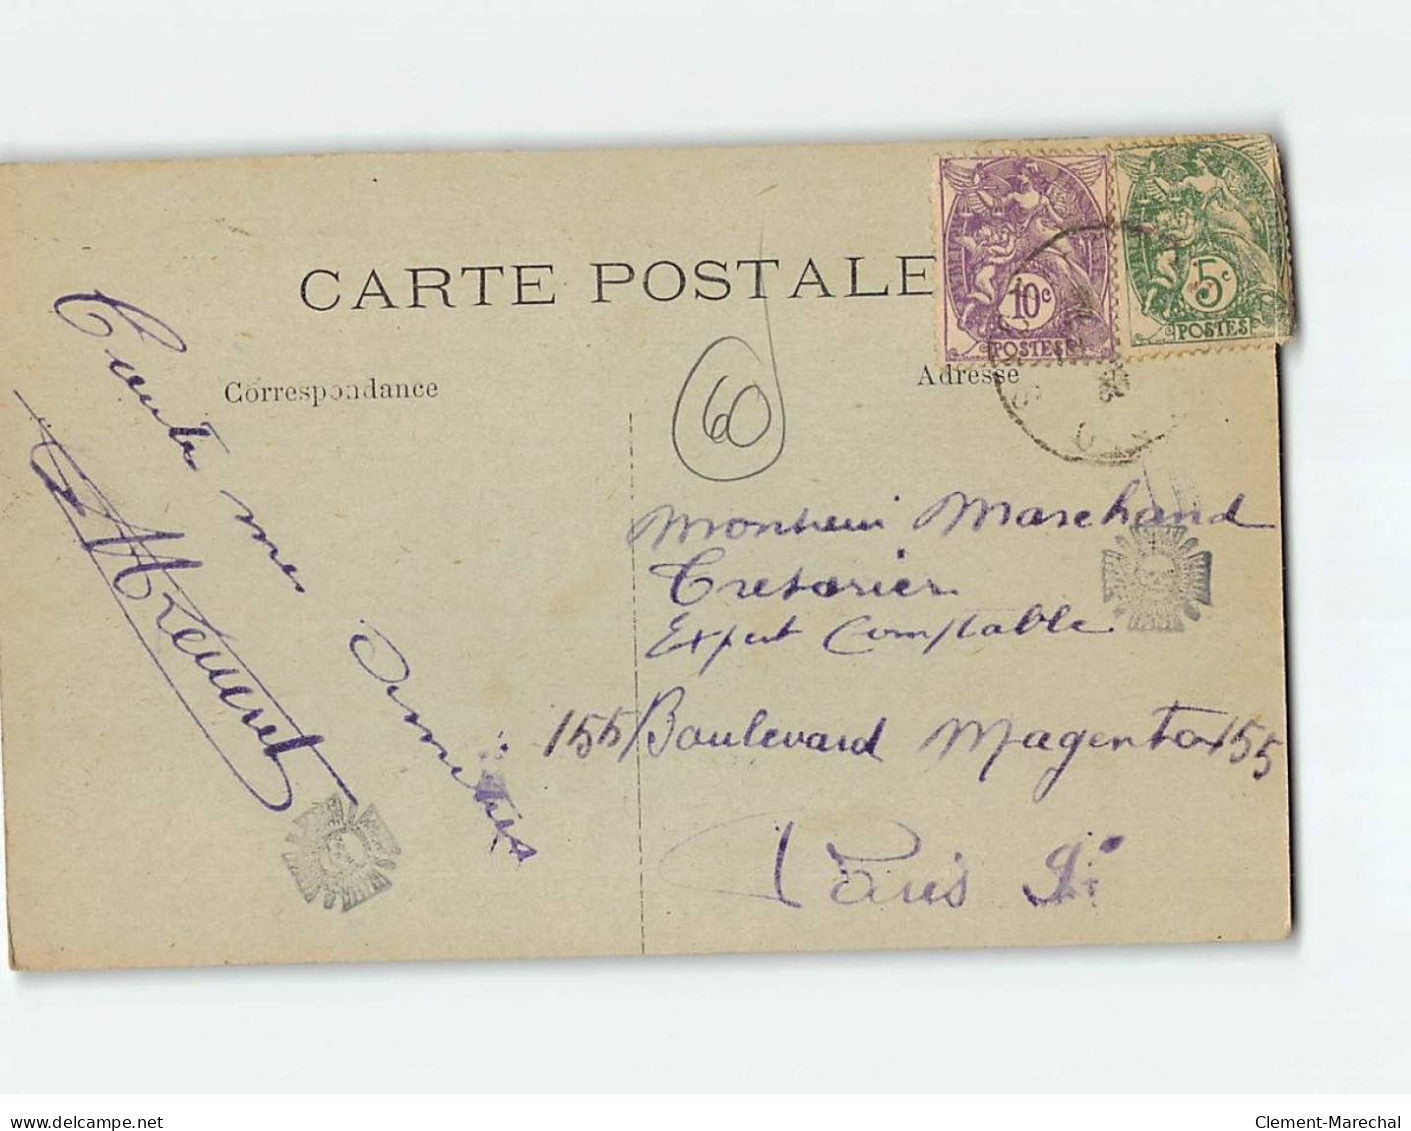 CARTE POSTALE
10c
POSTES
5c
POSTES
Correspondance
Adresse
60
Toutes mes Amitiés
Monsieur Marchand
Tresorier
Expert Comptable
155 Boulevard Magenta 155
Paris
delcampe.net
Clement-Marechal